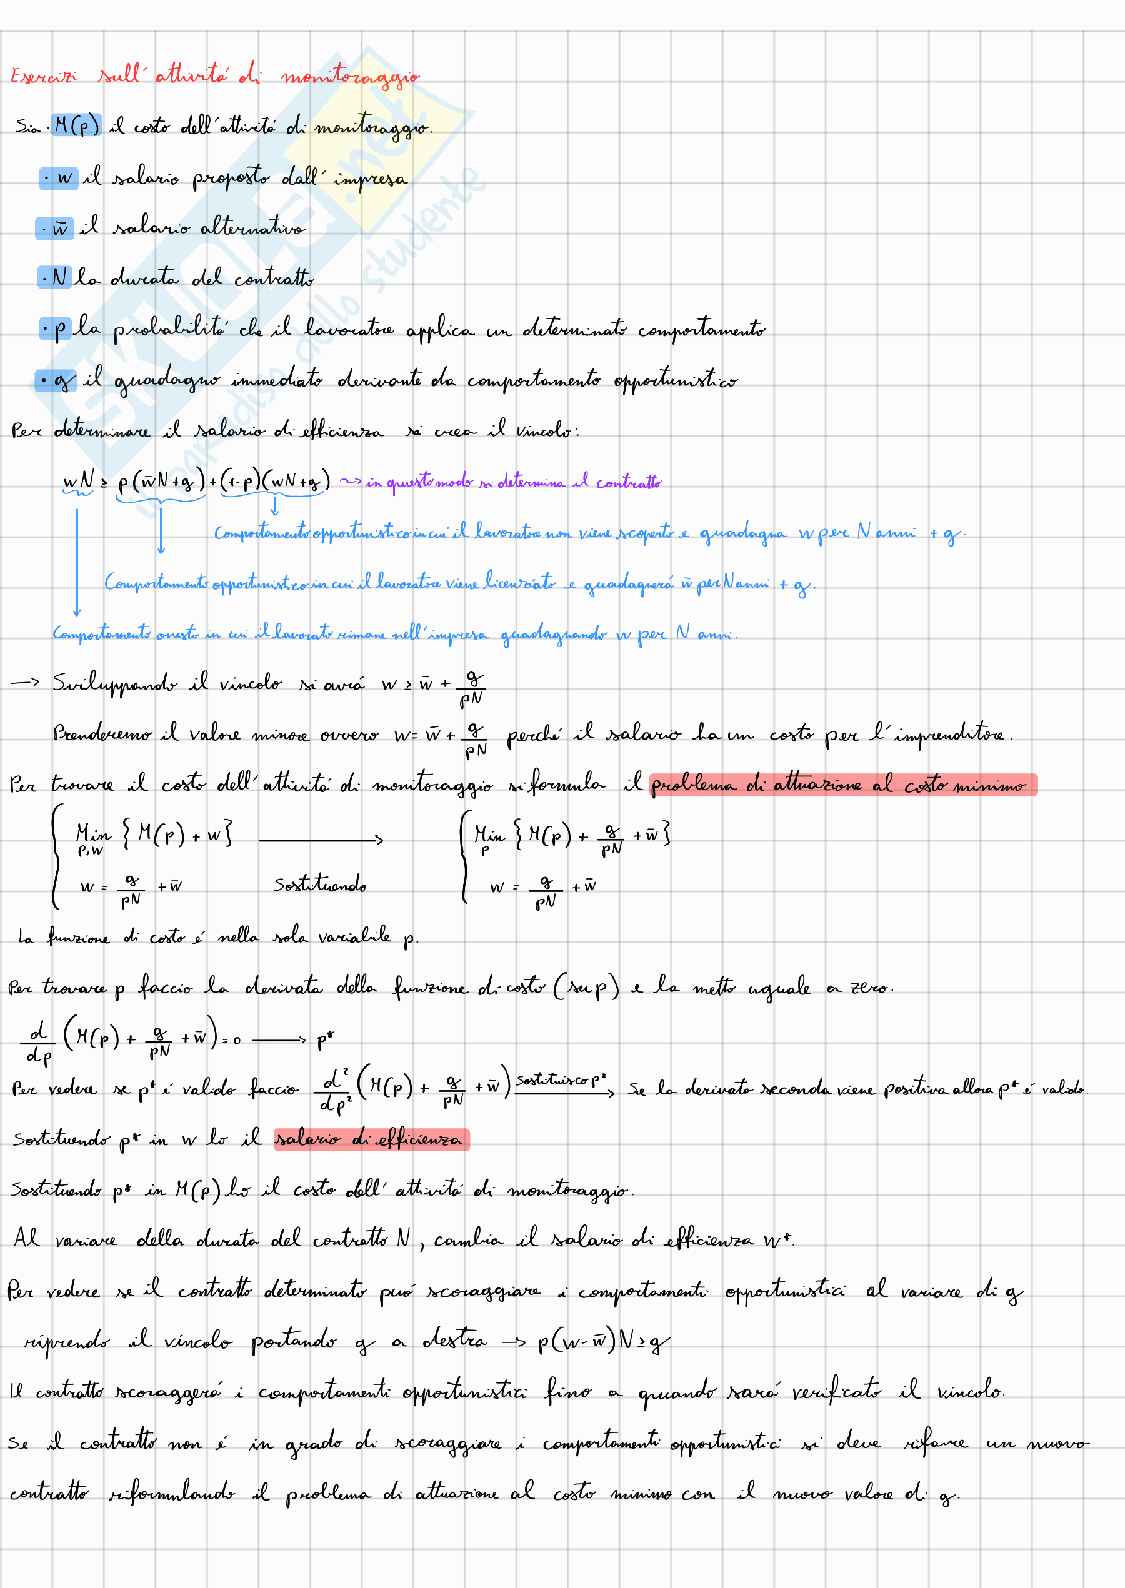 Esercizi sull'attività di monitoraggio
Sia · M(p) il costo dell'attività di monitoraggio.
· w il salario proposto dall'impresa
· w̄ il salario alternativo
· N la durata del contratto
· p la probabilità che il lavoratore applica un determinato comportamento
· g il guadagno immediato derivante da comportamento opportunistico
Per determinare il salario di efficienza si crea il vincolo:
wN ≥ p(w̄N+g)+(1-p)(wN+g) ~> in questo modo si determina il contratto
Comportamento opportunistico in cui il lavoratore non viene scoperto e guadagna w per N anni + g.
Comportamento opportunistico in cui il lavoratore viene licenziato e guadagnerá w̄ per N anni + g.
Comportamento onesto in cui il lavorato rimane nell'impresa guadagnando w per N anni.
→ Sviluppando il vincolo si avrá w ≥ w̄ + g/pN
Prenderemo il valore minore ovvero w = w̄ + g/pN perché il salario ha un costo per l'imprenditore.
Per trovare il costo dell'attivitá di monitoraggio si formula il problema di attuazione al costo minimo
{ Min p,w {M(p) + w} → { Min p {M(p) + g/pN + w̄}
w = g/pN + w̄ Sostituendo w = g/pN + w̄
La funzione di costo é nella sola variabile p.
Per trovare p faccio la derivata della funzione di costo (su p) e la metto uguale a zero.
d/dp (M(p) + g/pN + w̄) = 0 → p*
Per vedere se p* é valido faccio d²/dp² (M(p) + g/pN + w̄) Sostituisco p* → Se la derivata seconda viene positiva allora p* é valido
Sostituendo p* in w lo il salario di efficienza
Sostituendo p* in M(p) ho il costo dell'attivitá di monitoraggio.
Al variare della durata del contratto N, cambia il salario di efficienza w*.
Per vedere se il contratto determinato puó scoraggiare i comportamenti opportunistici al variare di g
riprendo il vincolo portando g a destra → p(w-w̄)N ≥ g
Il contratto scoraggerá i comportamenti opportunistici fino a quando sará verificato il vincolo.
Se il contratto non é in grado di scoraggiare i comportamenti opportunistici si deve rifare un nuovo
contratto riformulando il problema di attuazione al costo minimo con il nuovo valore di g.